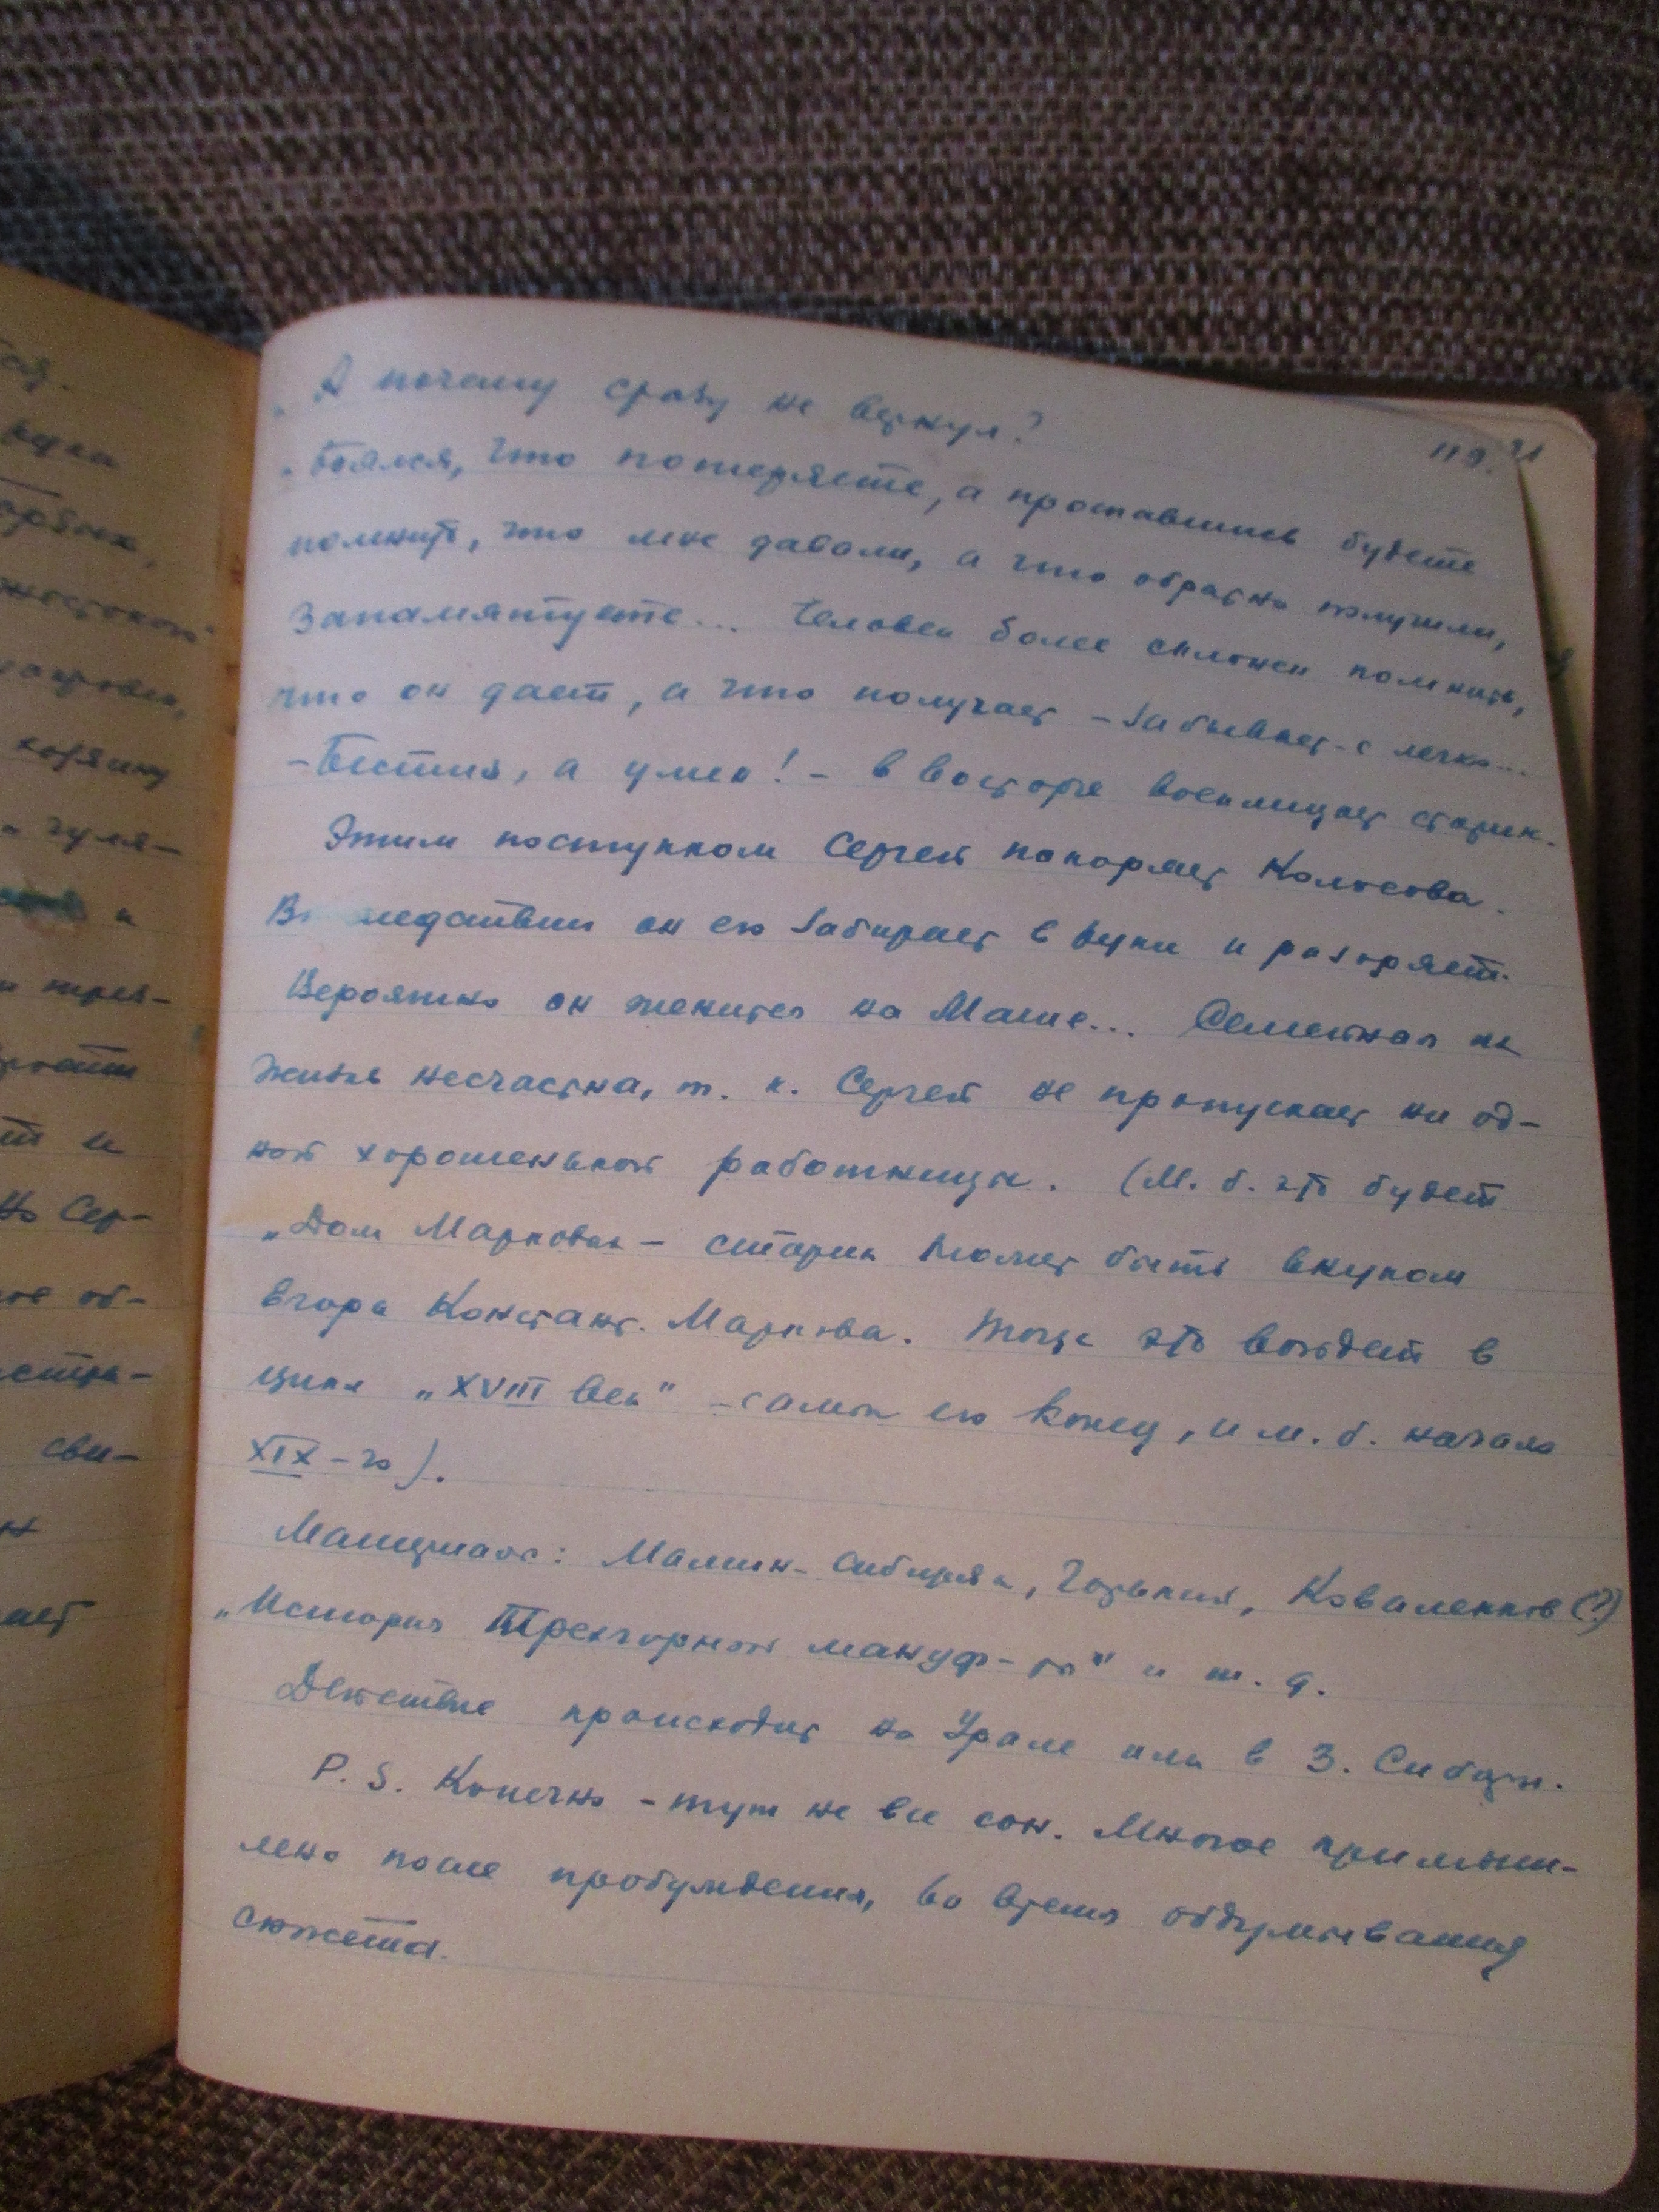 119.
- А почему сразу не вернул?
- Боялся, что потеряете, а проспавшись будете
помнить, что мне давали, а что обратно получили,
запамятуете... Человек более склонен помнить,
что он дает, а что получает - забывает-с легко...
- Бестия, а умен! - в восторге восклицает старик.
Этим поступком Сергей покоряет Колосова.
Впоследствии он его забирает в руки и разоряет.
Вероятно он женится на Маше... Семейная их
жизнь несчастна, т. к. Сергей не пропускает ни од-
ной хорошенькой работницы. (М. б. это будет
„Дом Марковых - старик может быть внуком
вора Констант. Маркова. Тогда это войдет в
цикл „XVIII век" - самый его конец, и м. б. начало
XIX-го).
Материалы: Мамин-Сибиряк, Горький, Коваленков (?)
„История Трехгорной мануф-ры" и т. д.
Действие происходит на Урале или в З. Сибири.
P. S. Конечно - тут не все сон. Многое примыш-
лено после пробуждения, во время обдумывания
сюжета.
рука
хозяину
и гуля-
и
на Сер-
ое об-
сви-